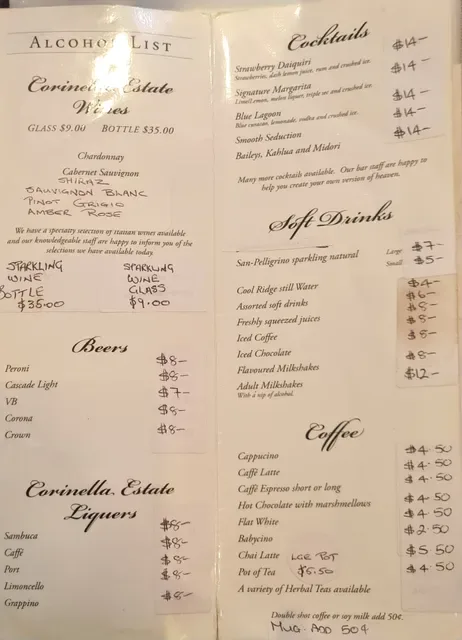 ALCOHOL LIST
Corinella Estate
Wines
GLASS $9.00 BOTTLE $35.00
Chardonnay
Cabernet Sauvignon
SHIRAZ
SAUVIGNON BLANC
PINOT GRIGIO
AMBER ROSE
We have a specialty selection of Italian wines available
and our knowledgeable staff are happy to inform you of the
selections we have available today.
SPARKLING WINE BOTTLE $35.00
SPARKLING WINE GLASS $9.00
Beers
Peroni $8-
Cascade Light $8-
VB $7-
Corona $8-
Crown $8-
Corinella Estate
Liquers
Sambuca $8-
Caffé $8-
Port $8-
Limoncello $8-
Grappino $8-
Cocktails
Strawberry Daiquiri $14-
Strawberries, dash lemon juice, rum and crushed ice.
Signature Margarita $14-
Limoncello, melon liquer, triple sec and crushed ice.
Blue Lagoon $14-
Blue curacao, lemonade, vodka and crushed ice.
Smooth Seduction $14-
Baileys, Kahlua and Midori $14-
Many more cocktails available. Our bar staff are happy to
help you create your own version of heaven.
Soft Drinks
San-Pelligrino sparkling natural Large $7-
Small $5-
Cool Ridge still Water $4-
Assorted soft drinks $6-
Freshly squeezed juices $8-
Iced Coffee $8-
Iced Chocolate $8-
Flavoured Milkshakes $8-
Adult Milkshakes $12-
With a top of alcohol.
Coffee
Cappucino $4.50
Caffé Latte $4.50
Caffé Espresso short or long $4.50
Hot Chocolate with marshmellows $4.50
Flat White $4.50
Babycino $2.50
Chai Latte $5.50
Pot of Tea LGE POT $5.50 $4.50
A variety of Herbal Teas available
Double shot coffee or soy milk add 50¢.
MUG ADD 50¢